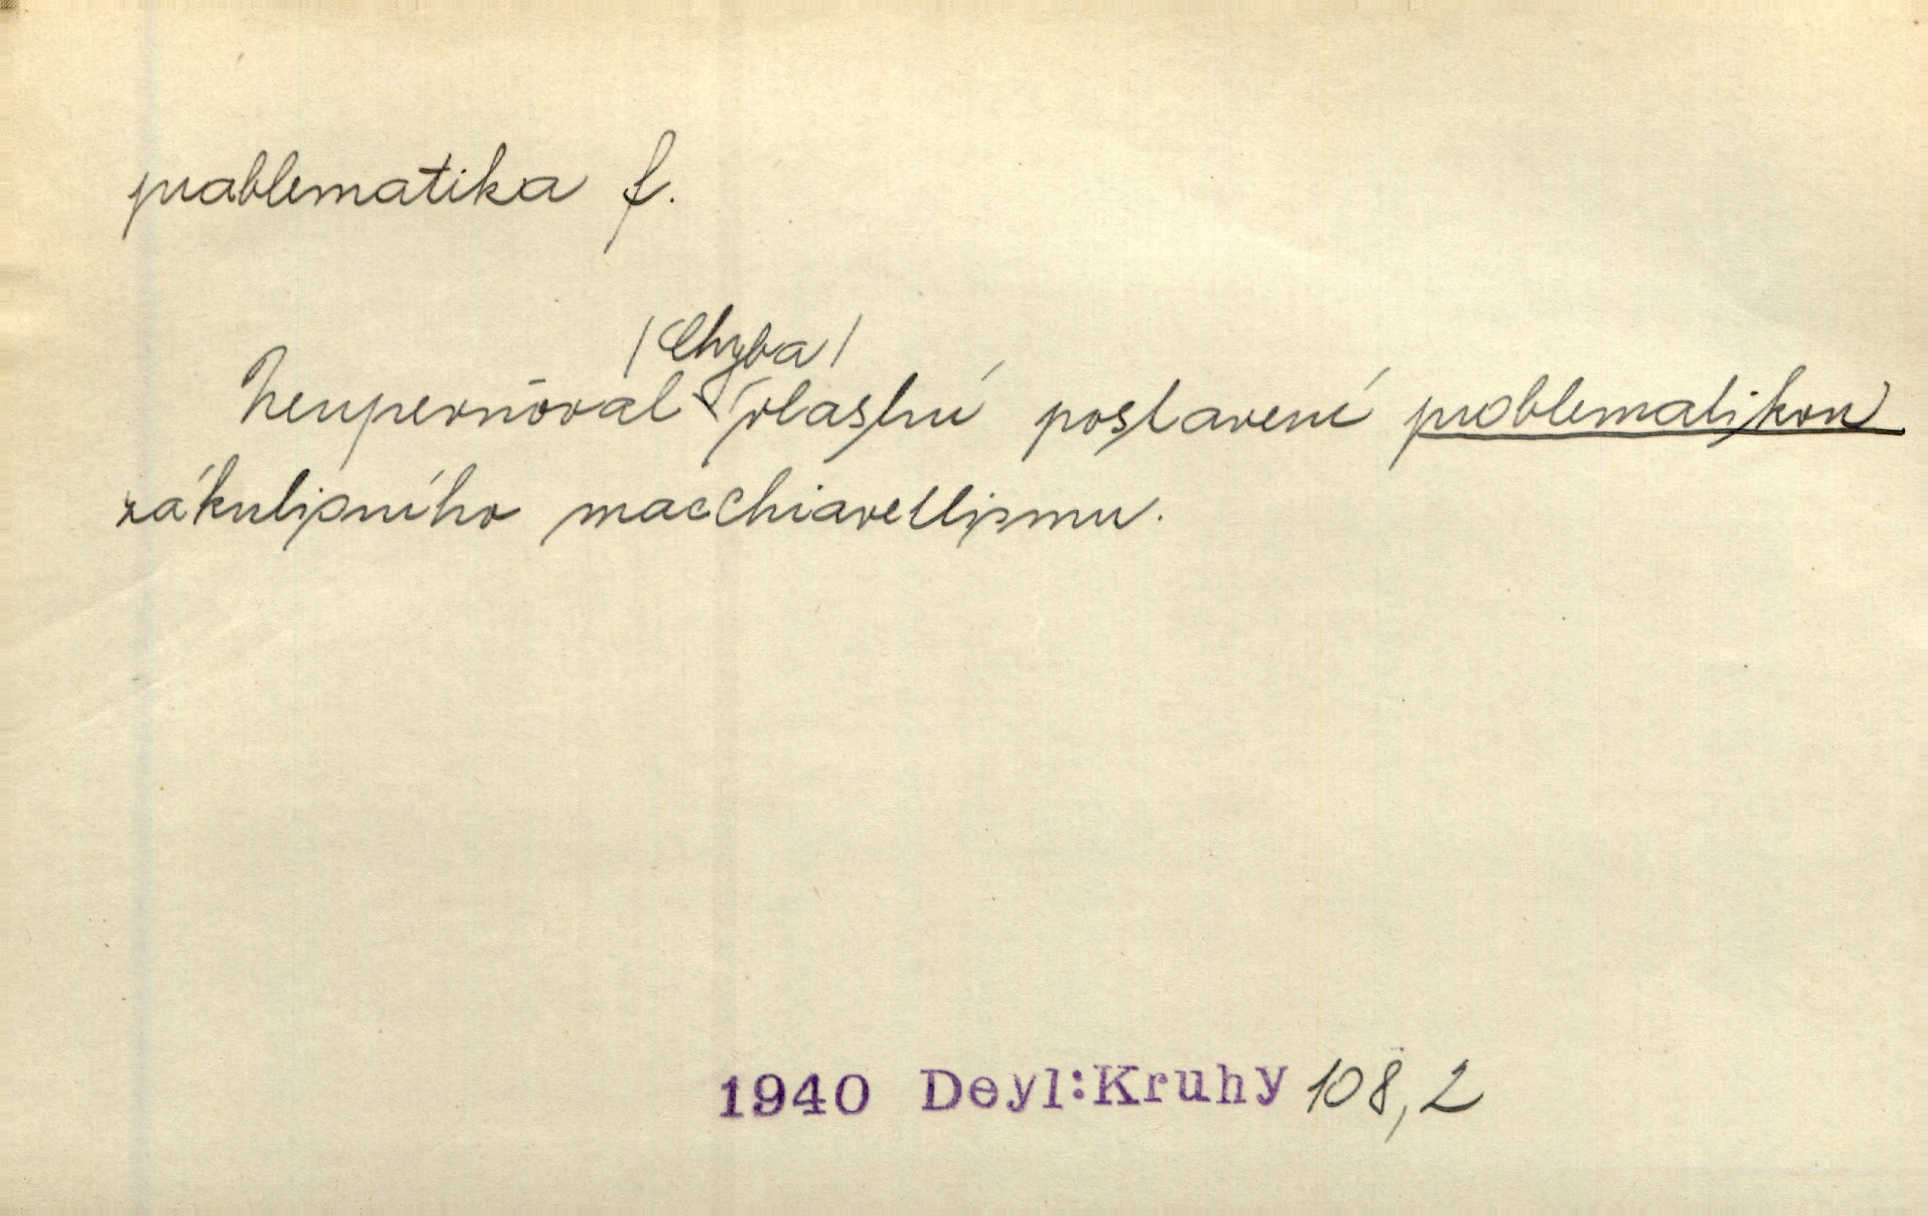 problematika f.
/Chyba/
Neupevňoval vlastní postavení problematikou
zákulisního macchiavellismu.
1940 Deyl:Kruhy 108,2